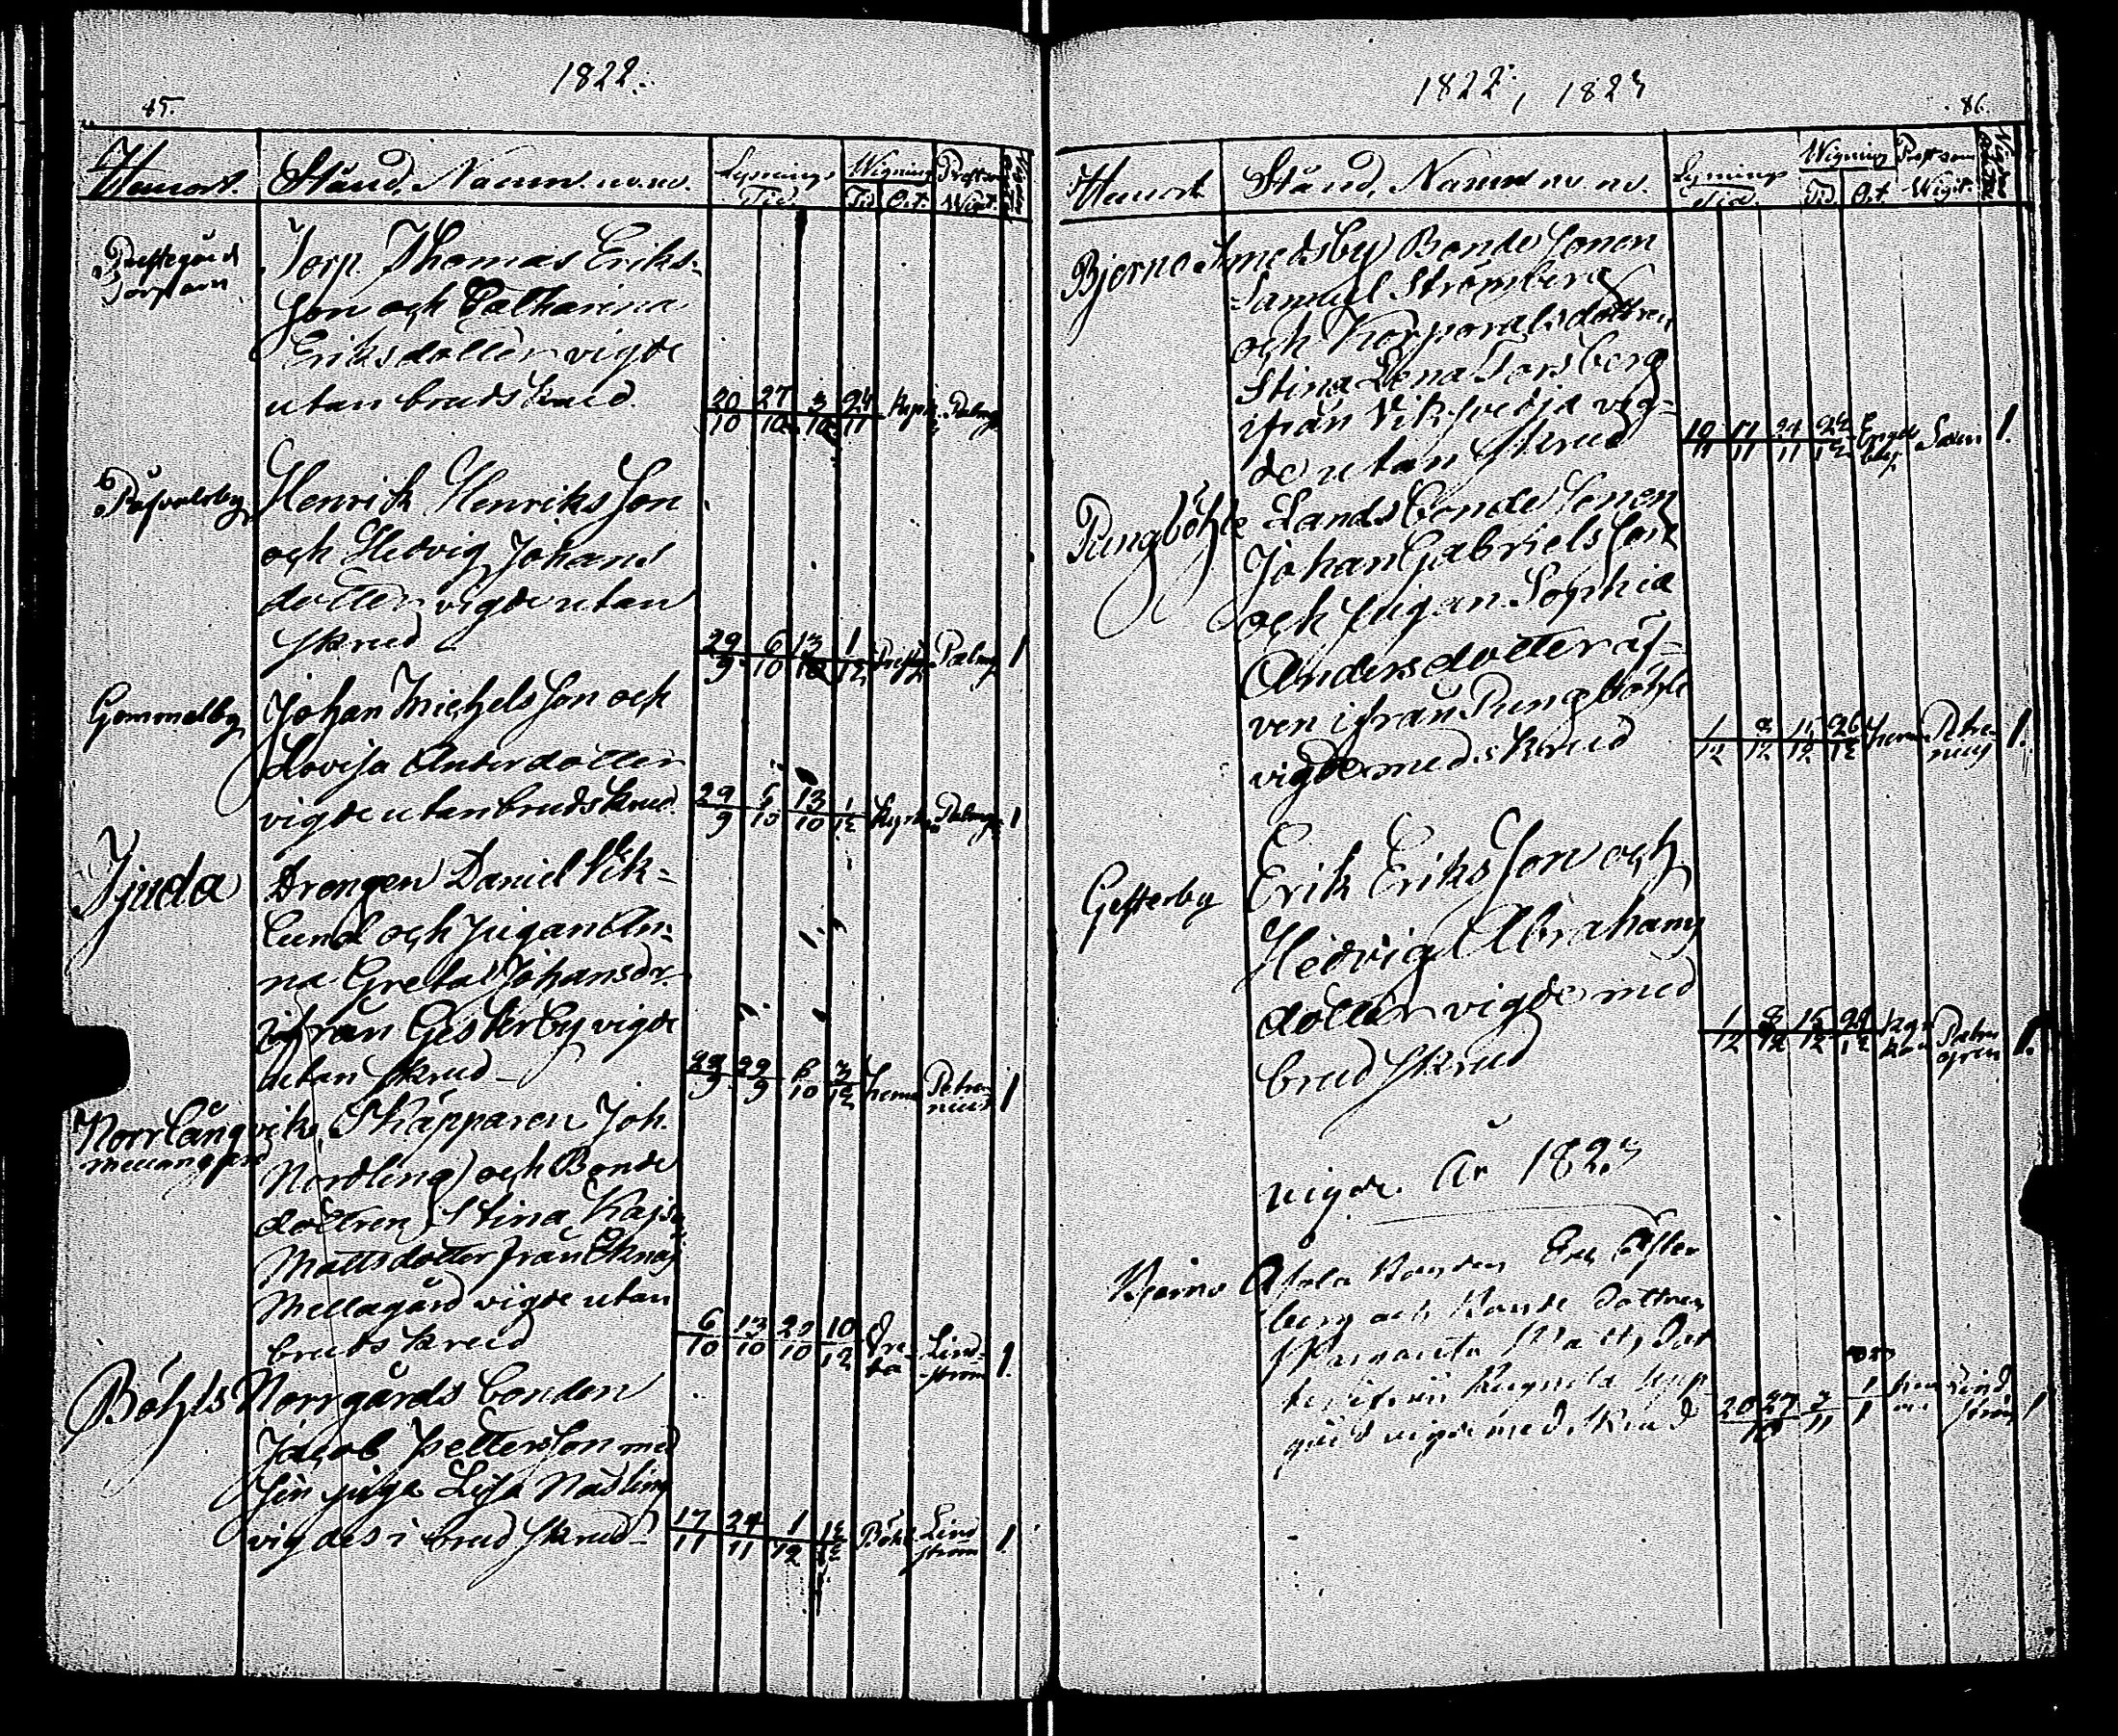 1822.
85.
Hemort. Stånd, Namn m.m. Lysnings Tid Wigning Tid Ort Prest som Wigt.
Prestegårds
Torparn
Torp. Thomas Eriks-
son och Catharina
Eriksdotter vigde
utan brudskrud. 20/10 27/10 3/10 24/11
Påfvalsby
Henrik Henriksson
och Hedvig Johans
dotter vigde utan
skrud 29/9 6/10 13/10 1/12 1
Gammelby
Johan Michelsson och
Lovisa Antsdotter
vigde utan brudskrud. 29/9 6/10 13/10 1/12 Kyrkan 1
Ijuda
Drengen Daniel Vik-
lund och pigan An-
na Greta Johansdr.
ifrån Gesterby vigde
utan skrud 22/9 29/9 6/10 3/12 hema Petre-
nius 1
Norrlångvik
mellangård
Skäpparen Joh.
Nordling och Bonde
dottren Stina Kajsa
Mattsdotter från Eknäs
Mellagård vigde utan
brudskrud 6/10 13/10 20/10 10/12 Lind-
ström 1.
Böhls Norrgårds bonden
Jacob Pettersson med
sin piga Lisa Nådling
vigdes i brudskrud 17/11 24/11 1/12 Böhl Lind
ström 1.
1822, 1823
86.
Hemort Stånd, Namn m.m. Lysnings Tid. Wigning Tid Ort Prest som Wigt.
Bjerno Smedsby Bonde Sonen
Samuel Strömberg
och Korporalsdottren
Stina Lena Forsberg
ifrån Viksvedja vig-
de utan skrud 10/11 17/11 24/11 26/12 Engels
by 1.
Pungböhle Landsbonde Sonen
Johan Gabrielsson
och pigan Sophia
Andersdotter äf-
ven ifrån Pungböhle
vigde med skrud 1/12 8/12 15/12 26/12 hema Petre-
nius 1.
Gesterby
Erik Eriksson och
Hedvig Abrahams
dotter vigde med
brudskrud 1/12 8/12 15/12 Kyr
kan Palm
gren 1.
vigde. År 1823
Bjerno
berg och Bonde dottren
gård vigde med skrud 20 27/10 3/11 1/1 Lind
ström 1